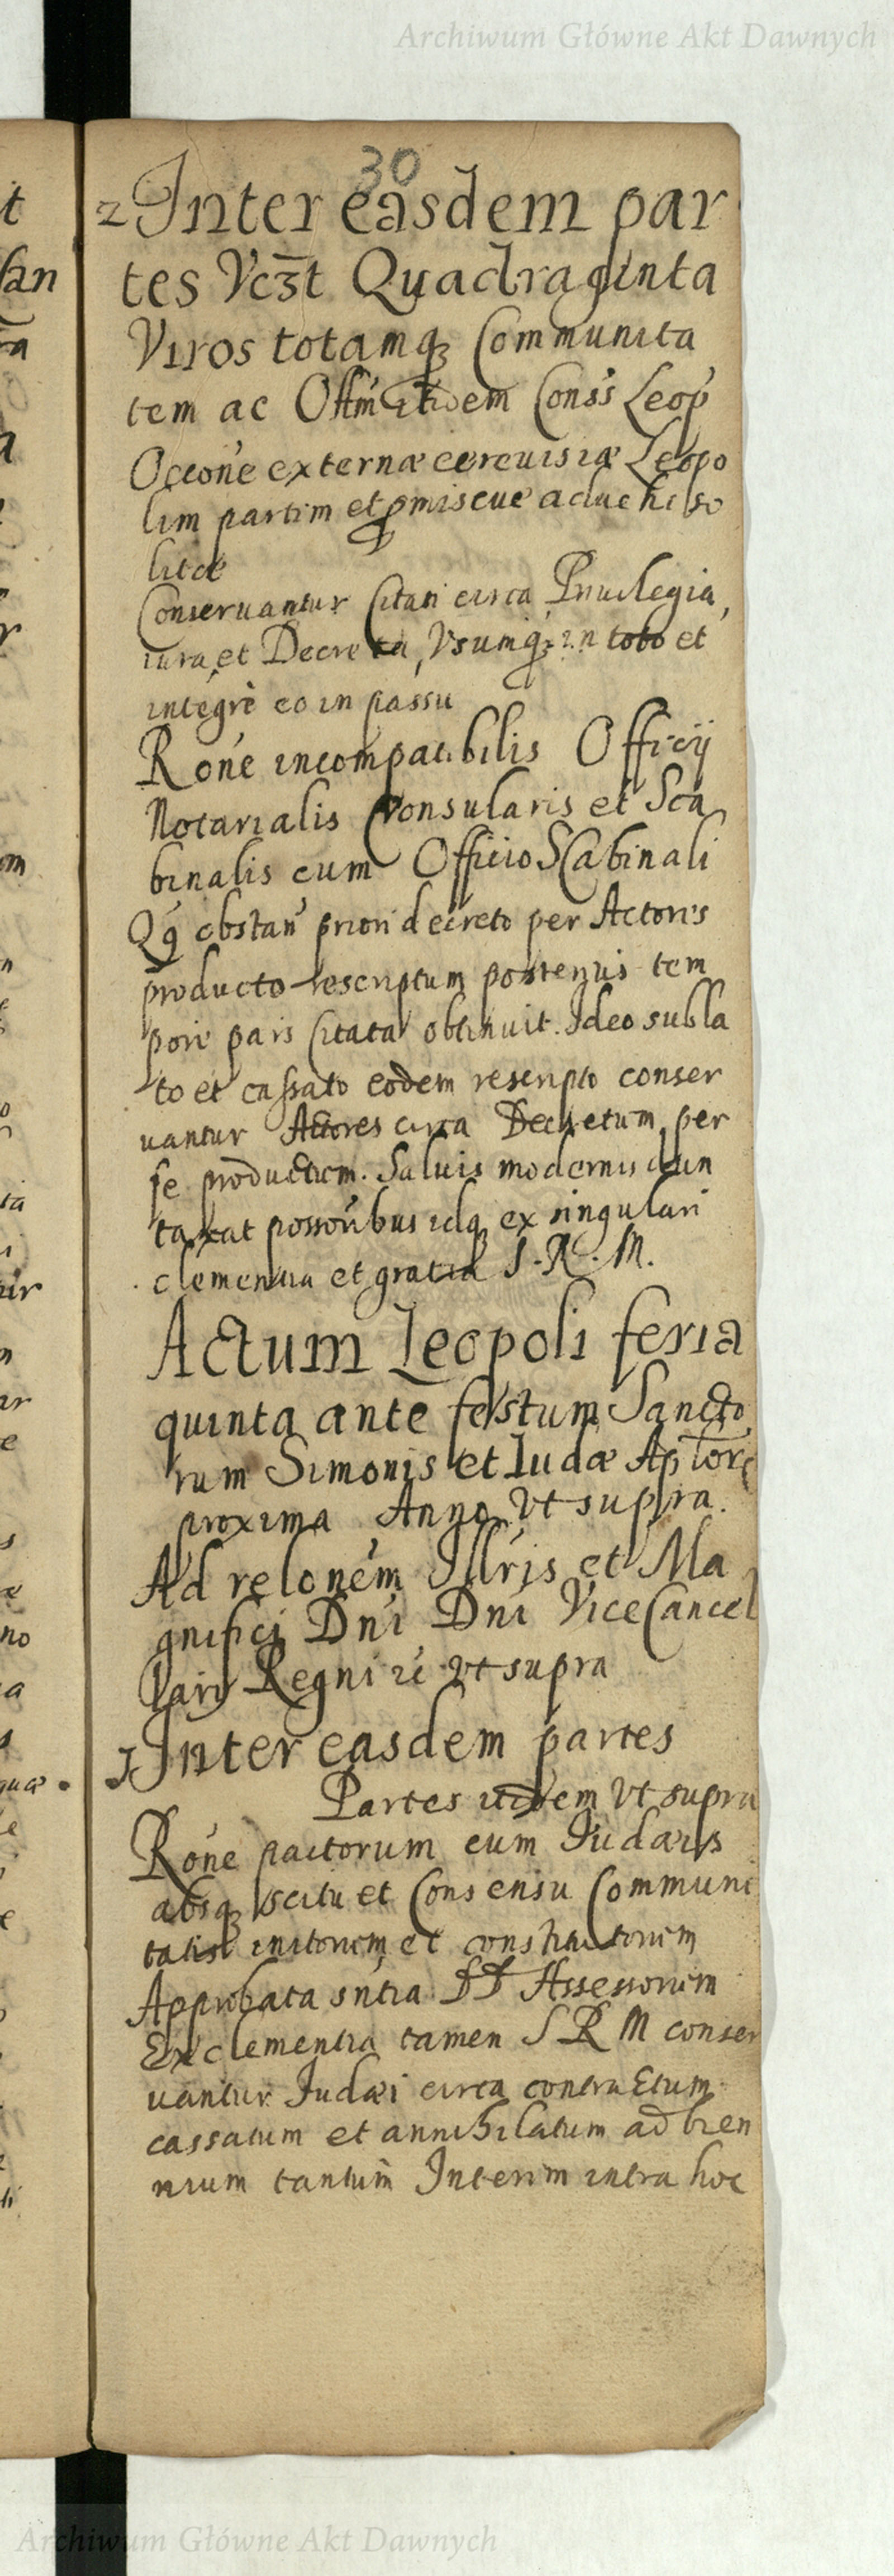 Archiwum Główne Akt Dawnych
30
2 Inter easdem par
tes Vcꝫt Quadraginta
Viros totamqꝫ Communita
tem ac Offm itidem Conss Leop
Occone externæ cereuisiæ Leopo
lim partim et pmiscue aduehi so
litæ
Conseruantur Citati circa Priuilegia,
iura et Decreta, Vsumqꝫ in toto et
integrè eo in passu
Rone incompatibilis Officij
Notarialis Consularis et Sca
binalis cum Officio Scabinali
Qꝫ obstan priori decreto per Actores
producto rescriptum posterius tem
pore pars Citata obtinuit. Ideo subla
to et cassato eodem rescripto conser
uantur Actores circa Decretum per
se productum. Saluis modernis dun
taxat possoribus idqꝫ ex singulari
clementia et gratia S. R. M.
Actum Leopoli feria
quinta ante festum Sancto
rum Simonis et Iudæ Aptor
proxima Anno Vt supra.
Ad relonem Illris et Ma
gnifici Dni Dni ViceCancel
larij Regni vt supra
1 Inter easdem partes
Partes itidem Vt supra
Rone pactorum cum Iudæis
absqꝫ scitu et Consensu Communi
tatis initorum et constitutorum
Approbata sntia DD Assessorum
Ex clementia tamen S R M conser
uantur Iudæi circa contractum
cassatum et annihilatum ad bien
nium tantum Interim intra hoc
Archiwum Główne Akt Dawnych